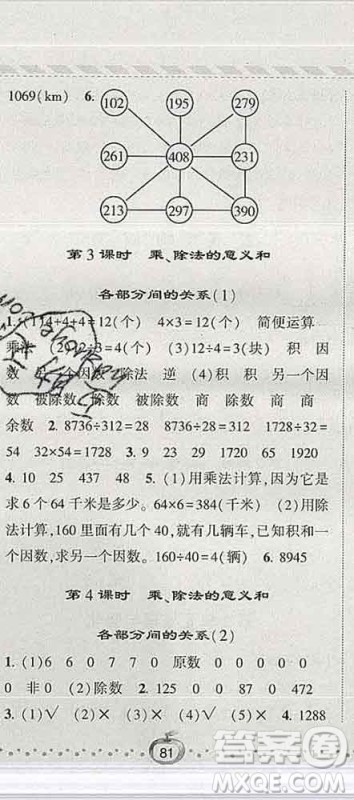 1069(km) 6. 102 195 279
261 408 231
213 297 390
第3课时 乘、除法的意义和
各部分间的关系(1)
1. (1)4+4+4=12(个) 4×3=12(个) 简便运算
乘法 (2)12÷3=4(个) (3)12÷4=3(块) 积 因
数 一个因数 除法 逆 (4)积 积 另一个因
数 被除数 除数 被除数 商 除数 商
余数 2. 8736÷312=28 8736÷28=312 1728÷32=
54 32×54=1728 3. 9 23 29 1720 65 1920
4. 10 25 437 48 5. (1)用乘法计算,因为它是
求6个64千米是多少。64×6=384(千米) (2)用除
法计算,160里面有几个40,就有几辆车,已知积和一
个因数,求另一个因数。160÷40=4(辆) 6. 8945
第4课时 乘、除法的意义和
各部分间的关系(2)
1. (1)6 6 0 7 7 0 原数 0 0 0 0 0
0 非0 (2)除数 2. 125 0 0 87 0 472
3. (1)√ (2)× (3)× (4)√ (5)× 4. 1288
81
答案圈
MXQE.COM